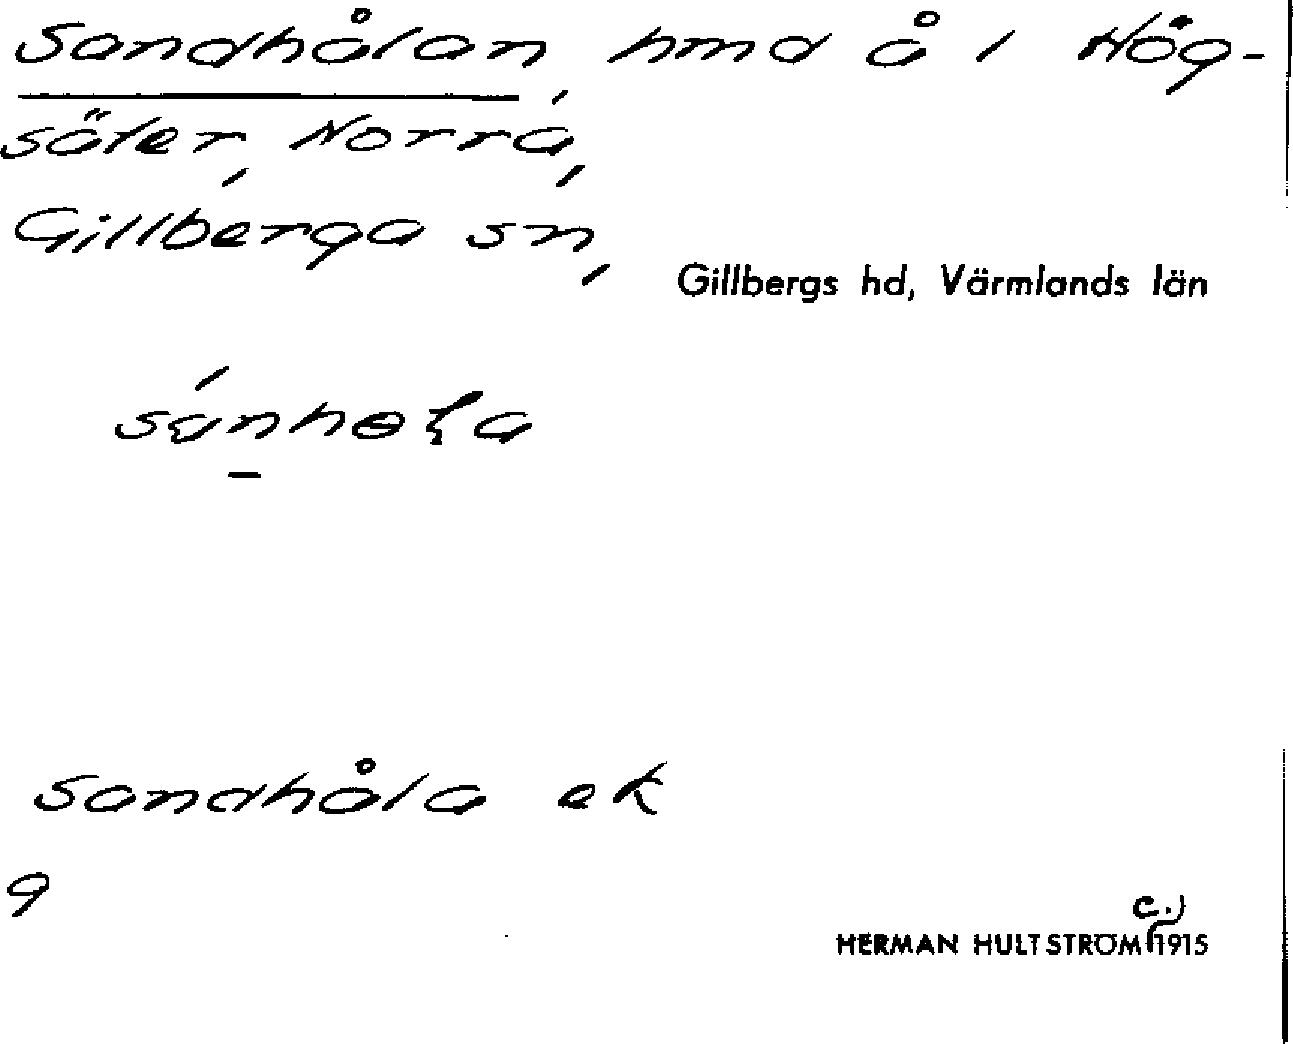 Sandhålan, hmd å i Hög-
säter, Norra,
Gillberga sn,
Gillbergs hd, Värmlands län
Sandhåla ek
9
c.)
HERMAN HULTSTRÖM 1915